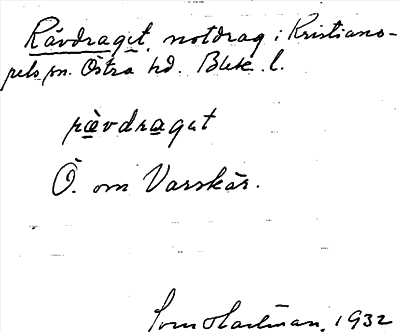 Rävdraget, notdrag i Kristiano-
pels sn. Östra hd.Blek. l.
rävdragat
Ö. om Varskär.
Hartman, 1932